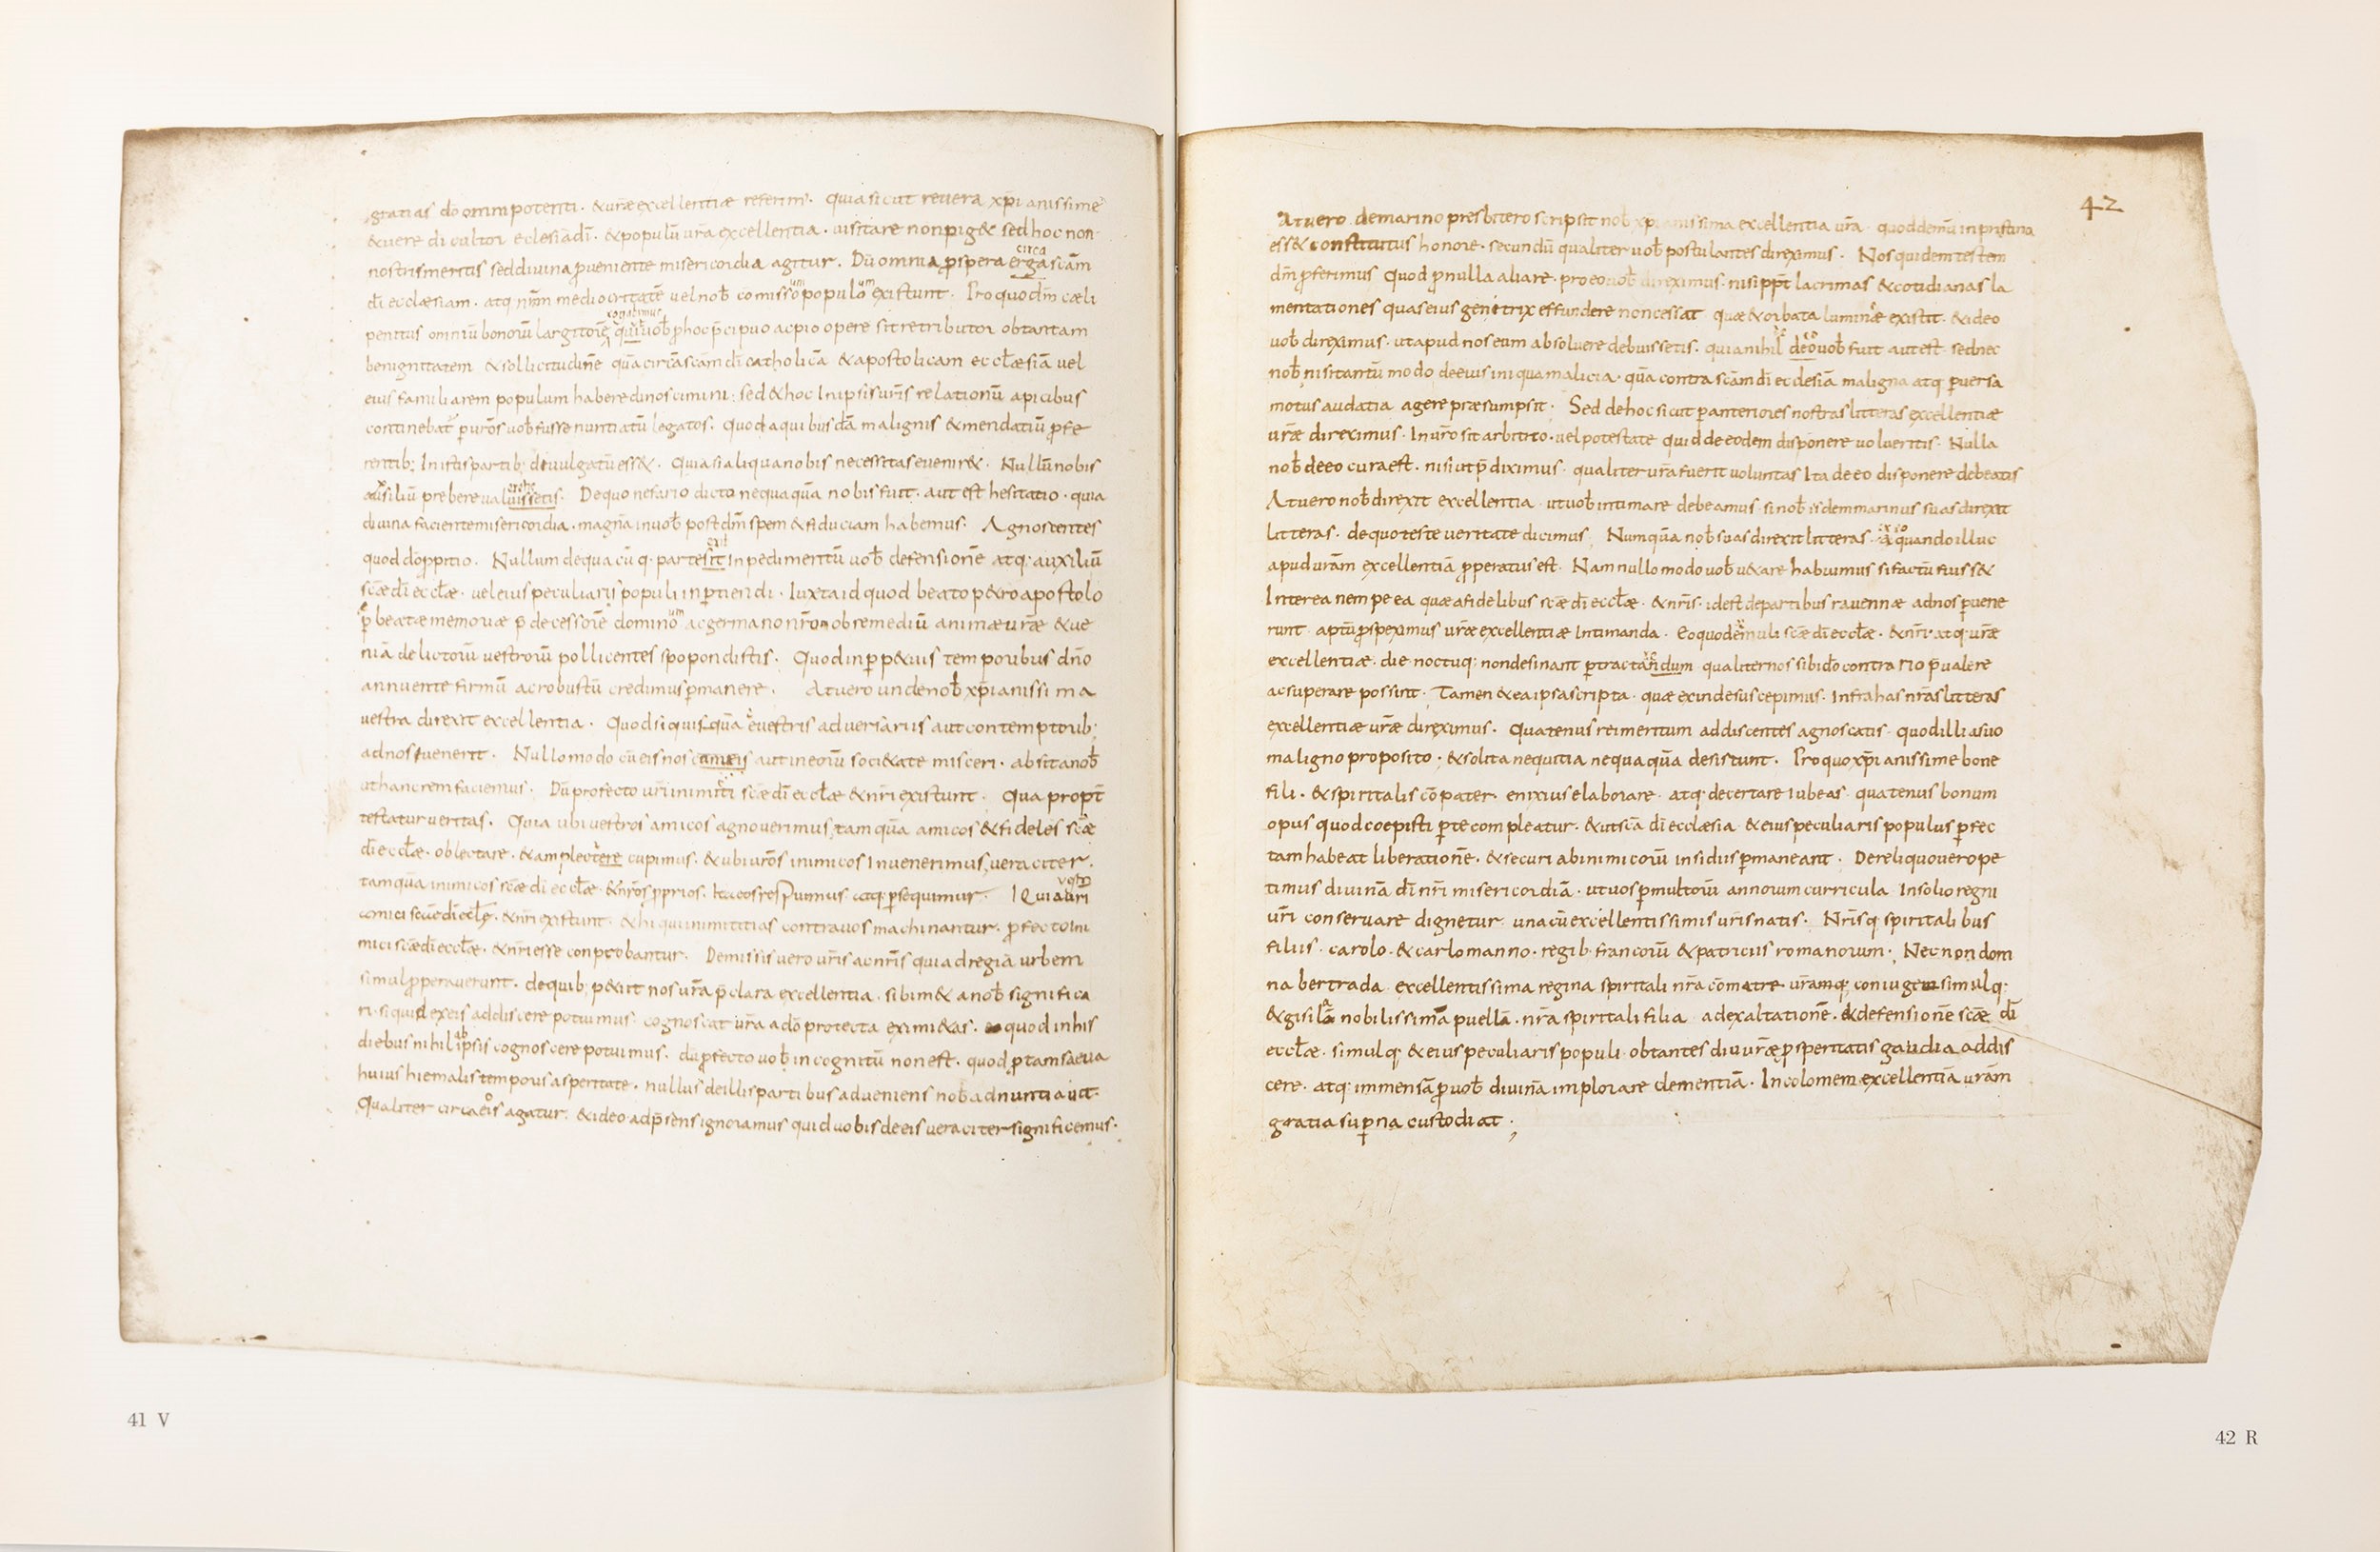 gratias dō omnipotenti · & urāe excellentiae referim' · quia sicut revera xp̄ianissime
& vere di cultor eclesiā dī · & populū urā excellentia · uisitare non pig& · sed hoc non
circa
nostris meritis sed divina p̄veniente misericordia agitur · Dū omnia p̄spera erga scām
um um
dī ecclaesiam · atq; nr̄am mediocritatē vel nob̄ comisso populo existunt · Pro quo dm̄ caeli
rogabimus
penitus omniū bonorū largitorē qui uob̄ p hoc p̄cipuo ac pio opere sit retributor obtantam
benignitatem & sollicitudinē quā circā scām dī catholicā & apostolicam ecclaesiā vel
eius familiarem populum habere dinoscimini ; sed & hoc In ipsis urīs relationū apicibus
continebat' p urōs uob̄ fuisse nuntiatū legatos · quod a quibusdā malignis & mendatiū p̄fe
rentib; In istis partib; divulgatū ess& · quia si aliqua nobis necessitas evenir& · Nullū nobis
ausiliū prebere valuissetis · De quo nefario dicto nequaquā nobis fuit · aut est hesitatio · quia
divina faciente misericordia · magnā in uob̄ post dm̄ spem & fiduciam habemus · Agnoscentes
quod dō ppitio · Nullum de quacūq; parte sit Inpedimentū uob̄ defensionē atq; auxiliū
scāe dī eccłae · vel eius peculiarīs populi inptiendi · Iuxta id quod beato p&ro apostolo
um
p̄ beatae memoriae p̄decessorē domino ac germano nr̄o ob remediū animae urāe & ve
niā delictorū vestrorū pollicentes spopondistis · Quod in pp&uis temporibus dn̄o
annuente firmū ac robustū credimus pmanere · At vero unde nob̄ xp̄ianissima
vestra direxit excellentia · Quod si quisquā e uestris adversariis aut contemptorib;
ad nos uenerit · Nullo modo cū eis nos aut in eorū soci&ate misceri · absit a nob̄
ut hanc rem faciemus · Dū profecto urī inimici scāe dī eccłae & nr̄i existunt · Qua propt̄
testatur veritas · Quia ubi vestros amicos agnoverimus, tamquā amicos & fideles scāe
dī eccłae · oblectare · & amplectere cupimus · & ubi urōs inimicos Invenerimus, veraciter ·
vestri
tamquā inimicos scāe dī eccłae · & nr̄os pprios · ita eos respuimus atq; psequimur · Quia uri
amici scāe dī eccłe · & nr̄i existunt · & hi qui inimititias contra uos machinantur · p̄fecto ini
mici scāe dī eccłae · & nr̄i esse conprobantur · De missis vero urīs ac nr̄is qui ad regiā urbem
simul p̄peraverunt · de quib; p&iit nos urā p̄clara excellentia · sibim& a nob̄ significa
ri · si quid ex eis addiscere potuimus · cognoscat urā a dō protecta eximi&as · quod in his
ab
diebus nihil ipsis cognoscere potuimus · dū p̄fecto uob̄ incognitū non est · quod p tam saeva
huius hiemalis temporis asperitate · nullus de illis partibus adveniens nob̄ adnuntiavit ·
Qualiter circa eos agatur · & ideo ad p̄sens ignoramus quid vobis de eis veraciter significemus ·
41 V
42
At vero de marino presbitero scripsit nob̄ xp̄ianissima excellentia urā · quod demū in pristino
ess& constitutus honore · secundū qualiter uob̄ postulantes direximus · Nos quidem testem
dm̄ p̄ferimus quod p nulla alia re · pro eo uob̄ direximus · nisi ppt̄ lacrimas & cotidianas la
mentationes quas eius genetrix effundere non cessat quae & orbata luminae existit · & ideo
uob̄ direximus · ut apud nos eum absolvere debuissetis · quia nihil de eo uob̄ fuit aut est · sed nec
nob̄ nisi tantū modo de eius iniqua malicia · quā contra scām dī ecclesiā maligna atq; pversa
motus audatia agere praesumpsit · Sed de hoc sicut p anteriores nostras litteras excellentiae
urāe direximus · In urō sit arbitrio · vel potestate quid de eodem disponere volueritis · Nulla
nob̄ de eo cura est · nisi ut p̄diximus · qualiter urā fuerit voluntas Ita de eo disponere debeatis
At vero nob̄ direxit excellentia · ut uob̄ intimare debeamus · si nob̄ isdem marinus suas direxit
litteras · de quo teste veritate dicimus · Numquā nob̄ suas direxit litteras · ex quo quando illuc
apud urām excellentiā p̄peratus est · Nam nullo modo uob̄ v&are habuimus si factū fuiss&
Interea nempe ea quae a fidelibus scāe dī eccłae · & nr̄is · id est de partibus ravennae ad nos pvene
runt · aptū p̄speximus urāe excellentiae Intimanda · Eo quod emuli scāe dī eccłae · & nr̄i · atq; urāe
excellentiae · die noctuq; non desinant ptractandum qualiter nos sibi dō contrario p̄valere
ac superare possint · Tamen & ea ipsa scripta · quae exinde suscepimus · Infra has nr̄as litteras
excellentiae urāe direximus · Quatenus rei meritum addiscentes agnoscatis · quod illi a suo
maligno proposito · & solita nequitia nequaquā desistunt · Pro quo xp̄ianissime bone
fili · & spiritalis cōpater · enixius elaborare · atq; decertare Iubeas · quatenus bonum
opus quod coepisti p te compleatur · & ut scā dī ecclaesia · & eius peculiaris populus pfec
tam habeat liberationē · & securi ab inimicorū insidiis pmaneant · De reliquo vero pe
timus divinā dī nr̄i misericordiā · ut uos p multorū annorum curricula Insolio regni
urī conservare dignetur · una cū excellentissimis urīs natis · Nr̄isq; spiritalibus
filiis · carolo · & carlomanno · regib; francorū & patriciis romanorum · Nec non dom
na bertrada excellentissima regina spiritali nr̄a cōmatre urāmq; coniugem simulq;
& gisilā nobilissimā puellā · nr̄a spiritali filia ad exaltationē · & defensionē scāe dī
eccłae · simulq; & eius peculiaris populi · obtantes diu urāe p̄speritatis gaudia addis
cere · atq; immensā p uob̄ divinā implorare clementiā · Incolomem excellentiā urām
gratia supna custodiat ·,
42 R